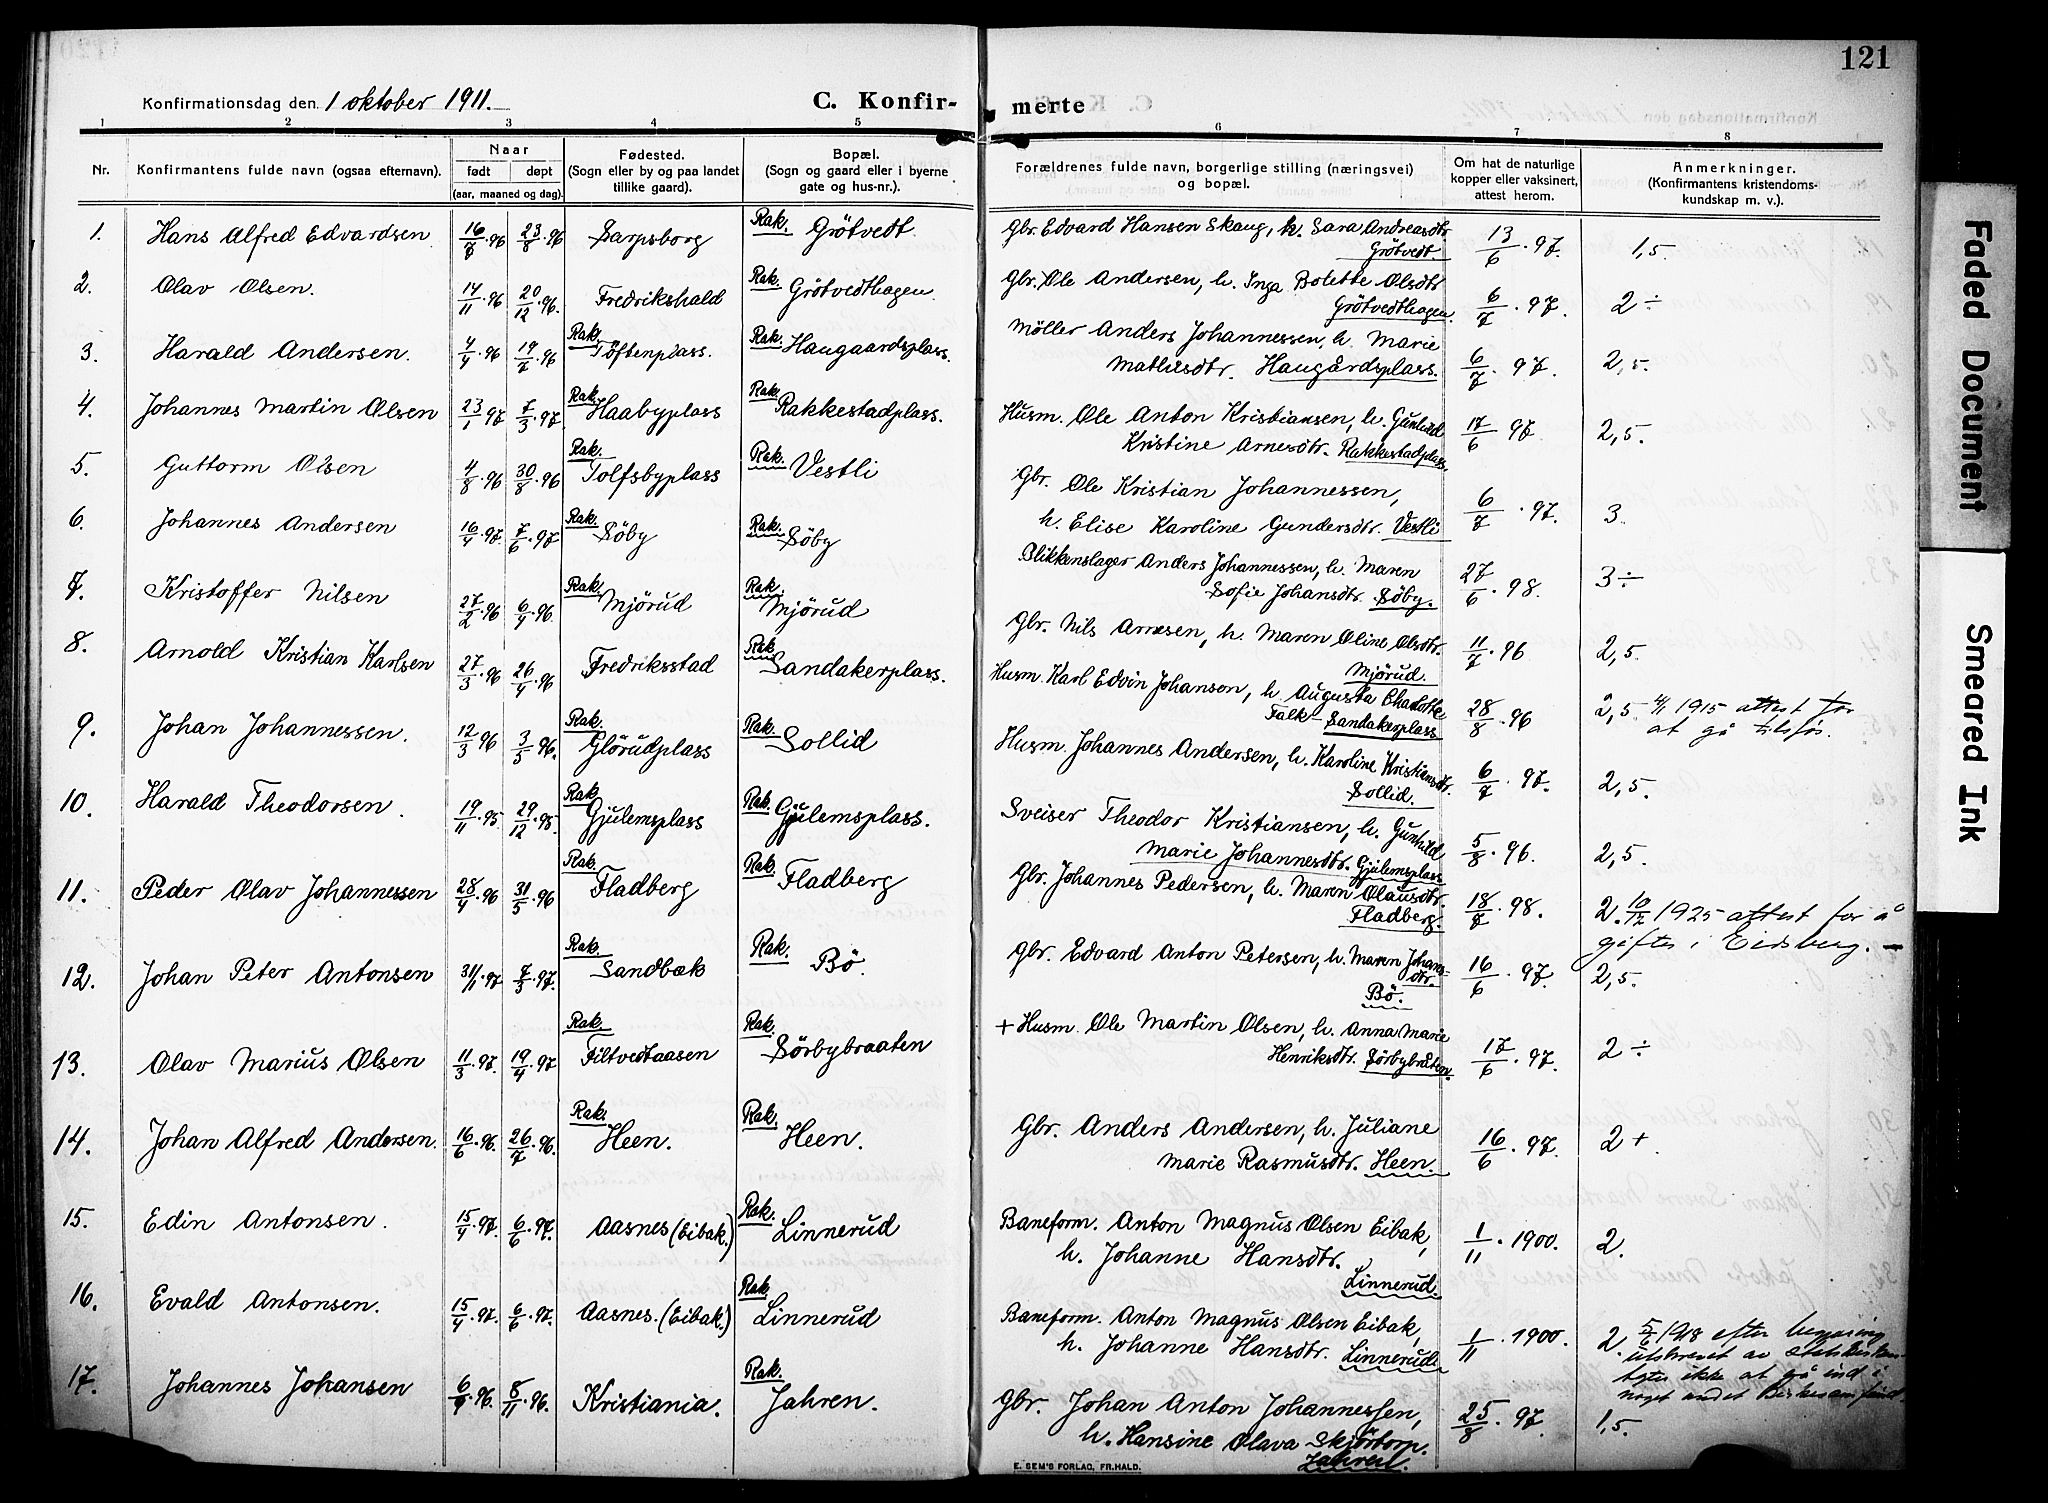 121
Konfirmationsdag den 1 oktober 1911.
C. Konfir-
merte
1 2 3 4 5 6 7 8
Nr.
Konfirmantens fulde navn (ogsaa efternavn).
Naar
født døpt
(aar, maaned og dag).
Fødested.
(Sogn eller by og paa landet
tillike gaard).
Bopæl.
(Sogn og gaard eller i byerne
gate og hus-nr.).
Forældrenes fulde navn, borgerlige stilling (næringsvei)
og bopæl.
Om hat de naturlige
kopper eller vaksinert,
attest herom.
Anmerkninger.
(Konfirmantens kristendoms-
kundskap m. v.).
1. Hans Alfred Edvardsen 16/8 · 96 23/8 · 96 Sarpsborg Rak. Grötvedt Gbr. Edvard Hansen Skaug, h. Sara Andreasdtr.
Grötvedt 13/6 · 97. 1,5.
2. Olav Olsen. 14/11 · 96 20/12 · 96. Fredrikshald Rak. Grötvedthagen. Gbr. Ole Andersen, h. Inga Bolette Olsdtr
Grötvedthagen. 6/7 · 97. 2 ÷
3. Harald Andersen. 4/4 · 96 19/7 · 96 Rak. Töftenplass. Rak. Haugaardsplass. Möller Anders Johannessen, h. Marie
Mathisdtr. Haugårdsplass. 6/7 · 97. 2,5.
4. Johannes Martin Olsen 23/1 · 97 7/3 · 97. Rak. Haabyplass Rak. Rakkestadplass. Husm. Ole Anton Kristiansen, h. Gunhild
Kristine Arnesdtr. Rakkestadplass. 17/6 · 97 2,5.
5. Guttorm Olsen 4/8 · 96 30/8 · 96 Rak. Tolfsbyplass Rak. Vestli Gbr. Ole Kristian Johannessen,
h. Elise Karoline Gundersdtr. Vestli 6/7 · 97. 3.
6. Johannes Andersen 16/4 · 97. 7/6 · 97 Rak. Söby Rak. Söby Blikkenslager Anders Johannessen, h. Maren
Sofie Johansdtr. Söby. 27/6 · 98. 3 ÷
7. Kristoffer Nilsen 27/2 · 96 6/4 · 96. Rak. Mjörud Rak. Mjörud Gbr. Nils Arnesen, h. Maren Oline Olsdtr.
Mjörud. 11/7 · 96 2,5.
8. Arnold Kristian Karlsen 27/3 · 96 26/4 · 96 Fredriksstad Rak. Sandakerplass. Husm. Karl Edvin Johansen, h. Augusta Charlotte
Falk - Sandakerplass 28/8 · 96 2,5 4/1 1915 attest for
at gå tilsjøs.
9. Johan Johannessen. 12/3 96 3/5 · 96. Rak. Glörudplass Rak. Sollid Husm. Johannes Andersen, h. Karoline Kristiansdtr.
Sollid. 6/7 · 97. 2,5.
10. Harald Theodorsen. 19/11 · 95 29/12 · 95. Rak. Gjulemsplass Rak. Gjulemsplass. Sveiser Theodor Kristiansen, h. Gunhild
Marie Johannesdtr. Gjulemsplass 5/8 · 96. 2,5.
11. Peder Olav Johannessen 28/4 · 96 31/5 · 96 Rak. Fladberg Rak. Fladberg Gbr. Johannes Pedersen, h. Maren Olausdtr.
Fladberg. 18/7 · 98. 2. 10/12 1925 attest for å
giftes i Eidsberg. -
12. Johan Peter Antonsen 31/1 · 97 7/3 · 97. Rak. Sandbæk Rak. Bö. Gbr. Edvard Anton Petersen, h. Maren Johans-
dtr.
Bö. 16/6 · 97. 2,5.
13. Olav Marius Olsen 11/3 · 97. 19/4 · 97 Rak. Filtvedtaasen Rak. Sörbybraaten + Husm. Ole Martin Olsen, h. Anna Marie
Henriksdtr. Sörbybråten. 17/6 · 97. 2 ÷
14. Johan Alfred Andersen. 16/6 · 96. 26/7 · 96. Rak. Heen. Rak. Heen. Gbr. Anders Andersen, h. Juliane
Marie Rasmusdtr. Heen. 16/6 · 97. 2 +.
15. Edin Antonsen. 15/4 · 97. 6/6 · 97. Aasnes (Eibak.) Rak. Linnerud Baneform. Anton Magnus Olsen Eibak,
h. Johanne Hansdtr.
Linnerud. 1/11 · 1900. 2.
16. Evald Antonsen. 15/4 · 97. 6/6 · 97. Aasnes. (Eibak.) Rak. Linnerud Baneform. Anton Magnus Olsen Eibak,
h. Johanne Hansdtr. Linnerud. 1/11 · 1900. 2. 5/6 1918 efter begjæring
utskrevet av statskirken
agter ikke at gå ind i
noget andet kirkesamfund.
17. Johannes Johansen 6/9 · 96. 8/11 · 96. Kristiania. Rak. Jahren. Gbr. Johan Anton Johannessen,
h. Hansine Olava Skjörtorp.
Jahren. 25/8 · 97. 1,5.
E. SEM'S FORLAG, FR.HALD.
Faded Document
Smeared Ink